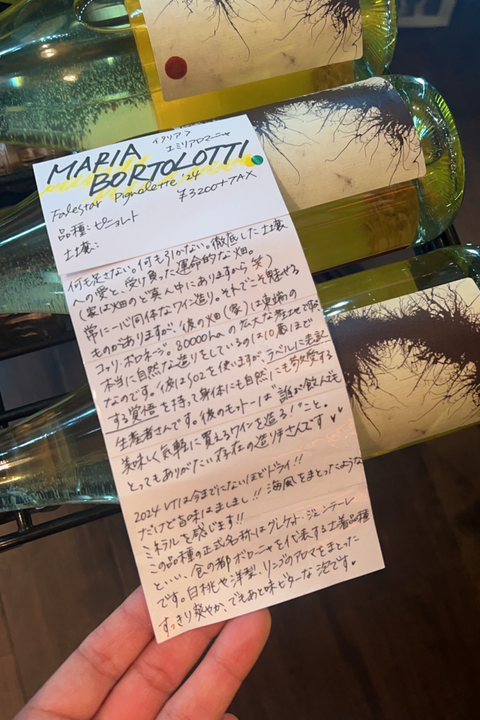 イタリアン
エミリアロマーニャ
MARIA
BORTOLOTTI
Falestar Pignoletto '24
¥3200+TAX
品種:ピニョレト
土壌:
何も足さない。何も引かない。徹底した土壌
への愛と、受け負った運命的な畑。
(家は畑のど真ん中にありますから笑)
常に一心同体なワイン造り。それでこそ魅せる
ものがありますが、彼の畑(家)は現場の
コッリ・ボロネーゼ。80000haの広大な産地ですが
本当に自然な造りをしているのは10名ほど
なのです。彼はSO2を使いますが、ラベルに表記
する覚悟を持って身体にも自然にも
生産者さんです。彼のモットーは"誰が飲んでも
美味しく気軽に買えるワインを造る!"こと。
とってもありがたい存在の造り手さんです♥♥
2024VTは今までにないほどドライ!!
だけど旨味はましまし!!海風をまとったような
ミネラルを感じます!!
この品種の正式名称はグレケット・ジェンティーレ
といい、食の都ボローニャを代表する土着品種
です。白桃や洋梨、リンゴのアロマをまとった
すっきり爽やか、でもあと味ビターな泡です。